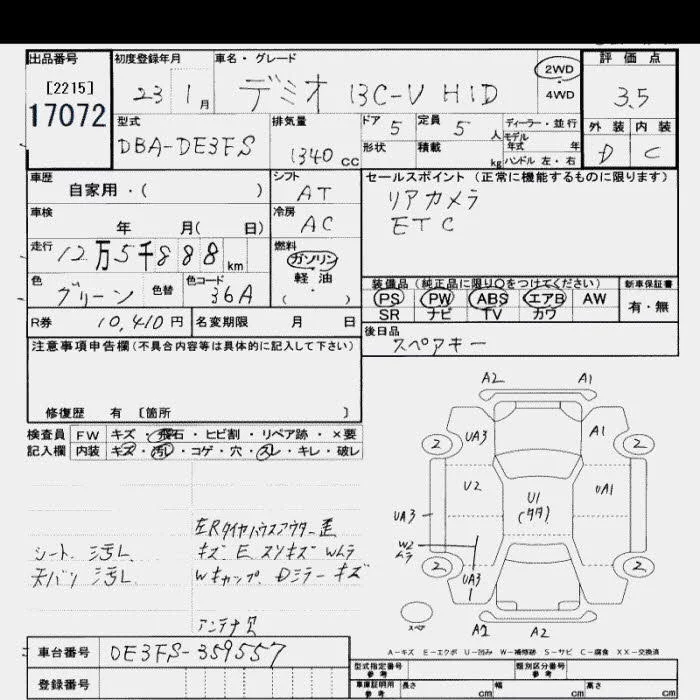 出品番号 初度登録年月 車名・グレード 評価点
[2215] 23 1月 デミオ 13C-V HID 2WD 3.5
17072 4WD
型式 排気量 ドア 5 定員 5人 ディーラー・並行 外装 内装
DBA-DE3FS 1340 CC モデル年式 年
形状 積載 kg ハンドル 左・右 D C
車歴 シフト セールスポイント(正常に機能するものに限ります)
自家用・( ) AT リアカメラ
車検 冷房 ETC
年 月( 日) AC
走行 12万5千888km 燃料
ガソリン
軽油
( )
色 グリーン 色替 色コード 36A
装備品(純正品に限り○をつけてください) 新車保証書
PS PW ABS エアB AW 有・無
SR ナビ TV カワ
R券 10,410円 名変期限 月 日 後日品
スペアキー
注意事項申告欄(不具合内容等は具体的に記入して下さい)
修復歴 有 [箇所 ]
検査員 FW キズ・飛石・ヒビ割・リペア跡・×要
記入欄 内装 キズ・汚レ・コゲ・穴・スレ・キレ・破レ
A2 A1
2 UA3 A1 2
U2 U1 UA1
UA3
W2
ムラ
2 UA3 2
1
スペア A2 A2
左Rタイヤハウスアウター歪
シート シ汚レ キズ E スリキズ Wムラ
天バリ シ汚レ Wキャップ、Dミラーキズ
アンテナ欠
A-キズ E-エクボ U-凹み W-補修跡 S-サビ C-腐食 XX-交換済
車台番号 DE3FS-359557
登録番号
型式指定番号 参考 類別区分番号 参考
車庫証明用 参考 長さ cm 幅 cm 高さ cm